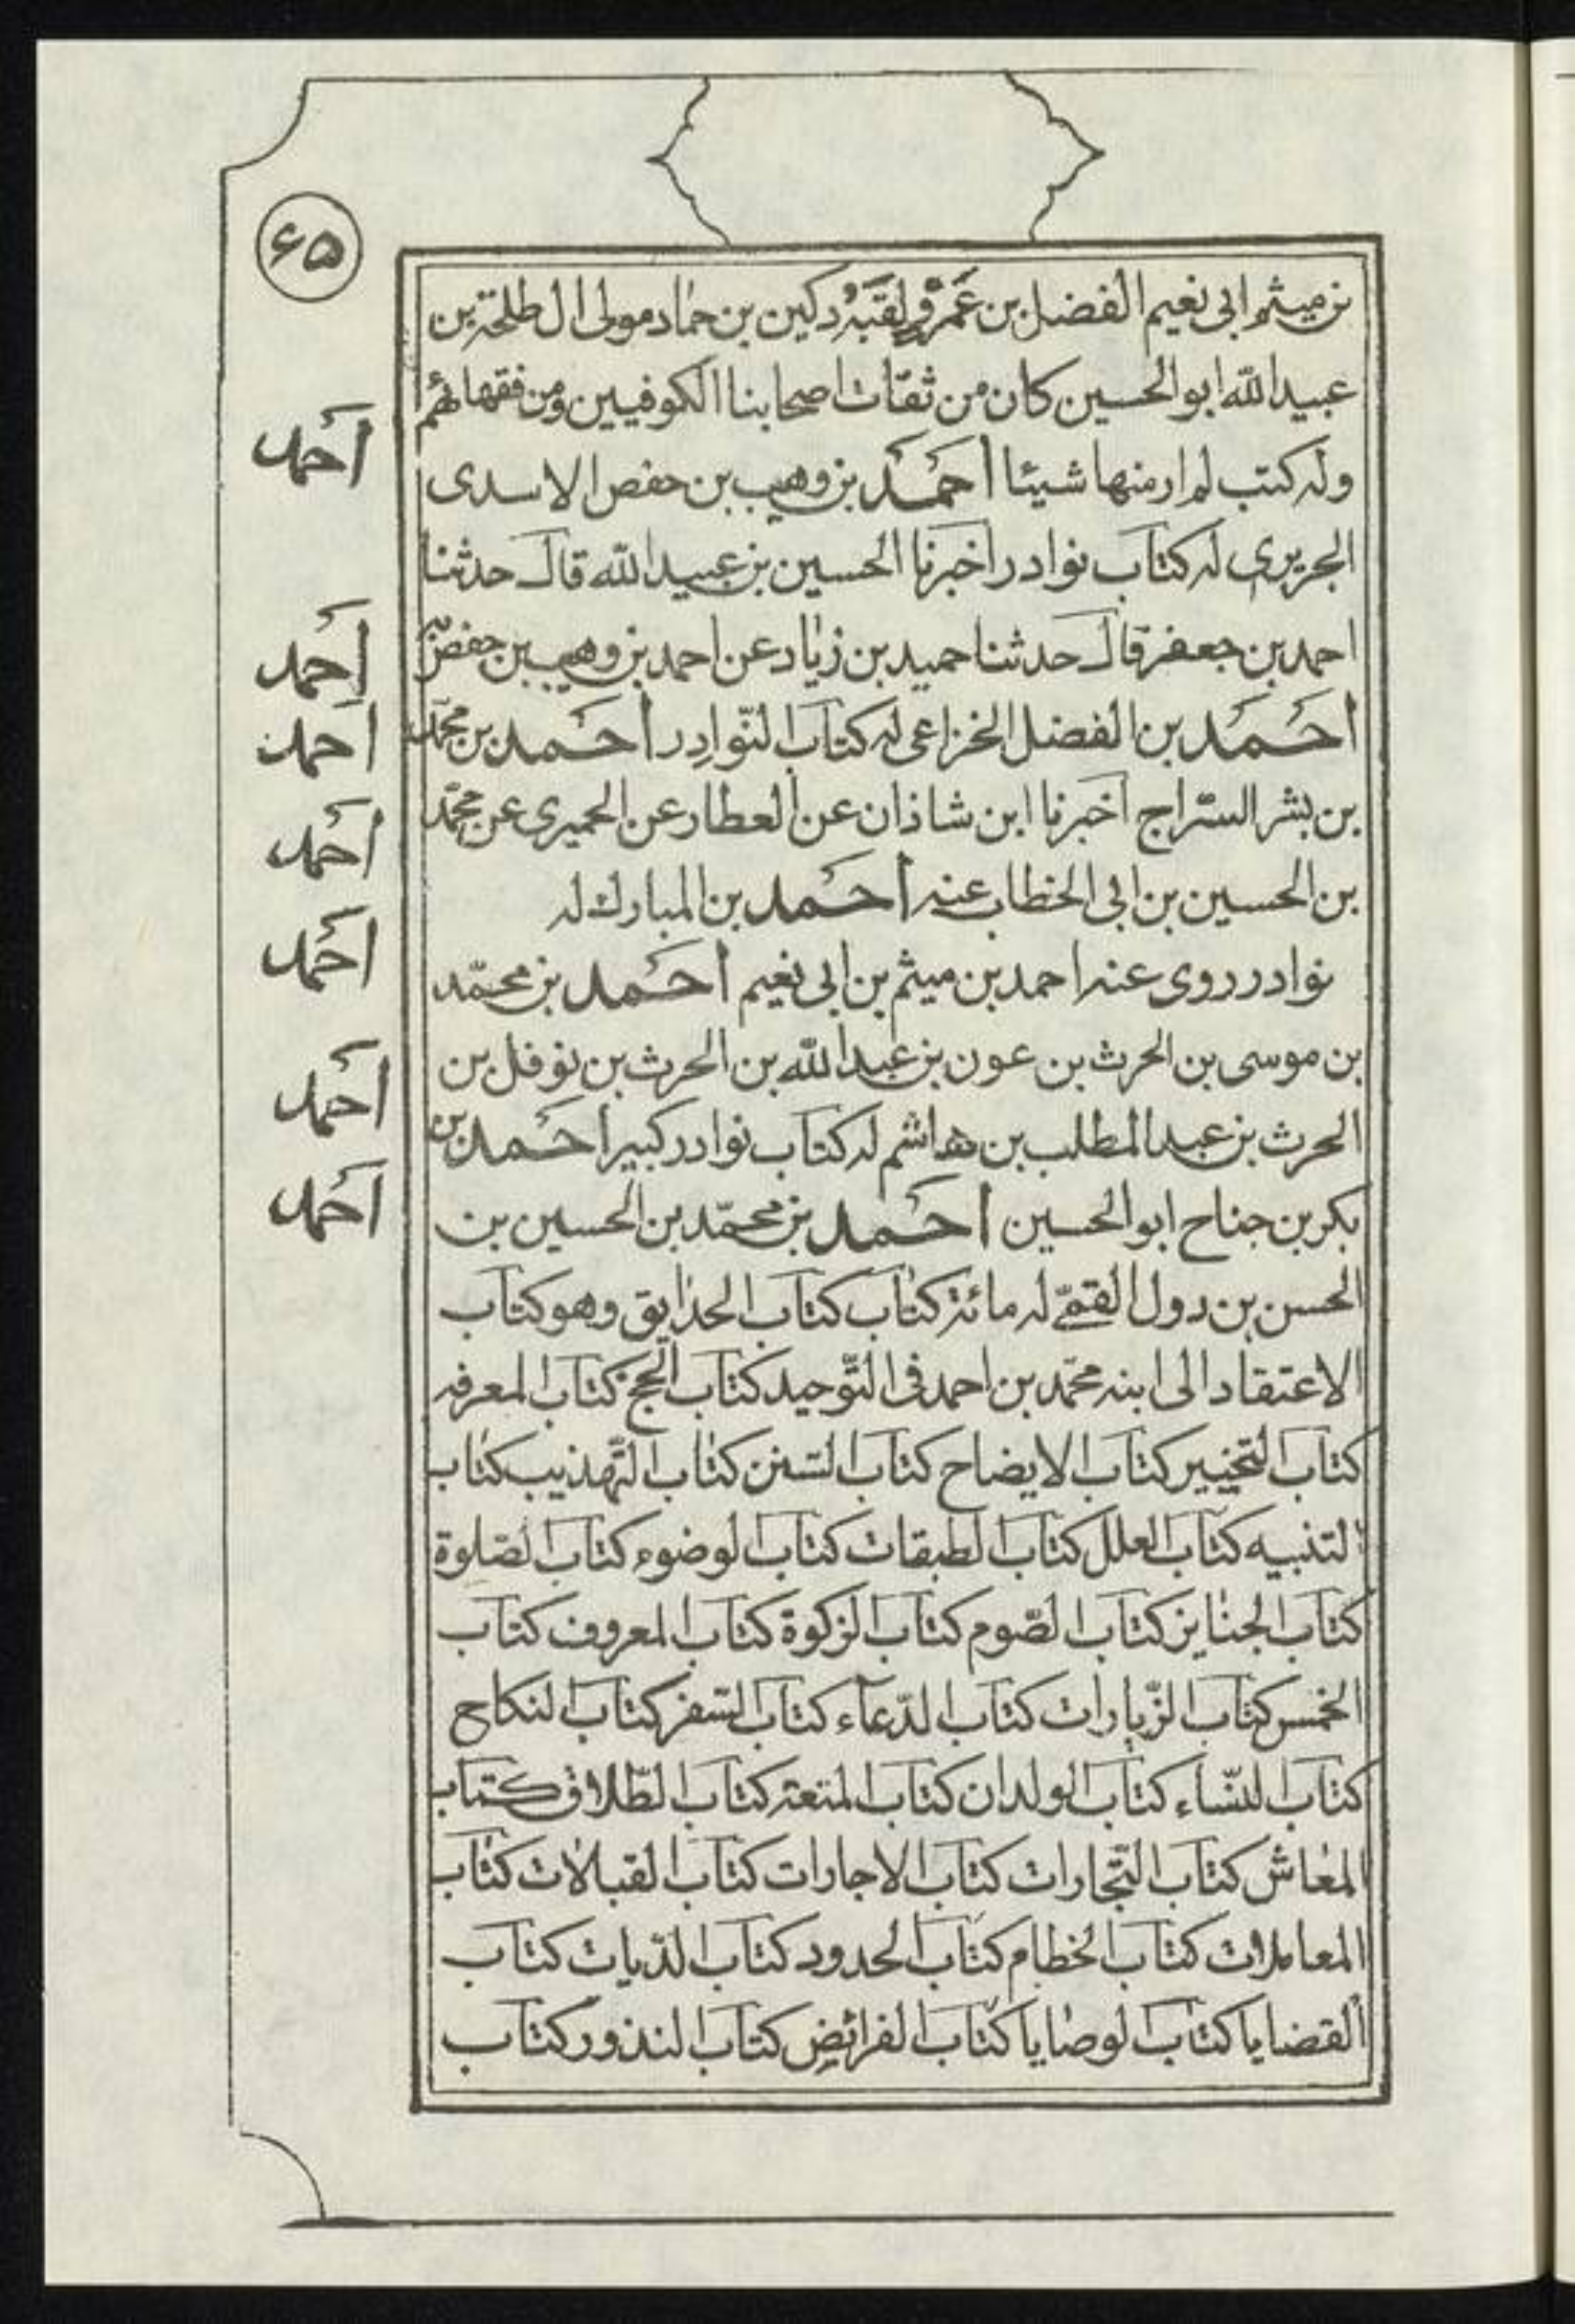 ۶۵
بن ميثم ابى نعيم الفضل بن عَمْرو لقبُه دكين بن حماد مولى ال طلحة بن
عبيد اللّه ابو الحسين كان من ثقات اصحابنا الكوفيين ومن فقهائهم
احمد
وله كتب لم ار منها شيئا احمد بن وهيب بن حفص الاسدى
الجريرى له كتاب نوادر اخبرنا الحسين بن عبيد اللّه قال حدثنا
احمد بن جعفر قال حدثنا حميد بن زياد عن احمد بن وهيب بن حفص
احمد
احمد بن الفضل الخزاعى له كتاب النّوادر احمد بن محمّد
احمد
بن بشر السرّاج اخبرنا ابن شاذان عن العطار عن الحميرى عن محمّد
احمد
بن الحسين بن ابى الخطاب عنه احمد بن المبارك له
نوادر روى عنه احمد بن ميثم بن ابى نعيم احمد بن محمّد
احمد
بن موسى بن الحرث بن عون بن عبد اللّه بن الحرث بن نوفل بن
الحرث بن عبد المطلب بن هاشم له كتاب نوادر كبير احمد بن
احمد
بكر بن جناح ابو الحسين احمد بن محمّد بن الحسين بن
احمد
الحسن بن دول القمّى له مائة كتاب كتاب الحدايق وهو كتاب
الاعتقاد الى ابنه محمّد بن احمد فى التّوحيد كتاب الحج كتاب المعرفه
كتاب التخيير كتاب الايضاح كتاب السّنن كتاب التّهذيب كتاب
التنبيه كتاب العلل كتاب الطبقات كتاب الوضوء كتاب الصّلوة
كتاب الجنايز كتاب الصّوم كتاب الزكوة كتاب المعروف كتاب
الخمس كتاب الزّيارات كتاب الدّعاء كتاب السّفر كتاب النكاح
كتاب النّساء كتاب الولدان كتاب المتعة كتاب الطّلاق كتاب
المعاش كتاب التّجارات كتاب الاجارات كتاب القبالات كتاب
المعاملات كتاب الخطام كتاب الحدود كتاب الدّيات كتاب
القضايا كتاب الوصايا كتاب الفرائض كتاب النذور كتاب